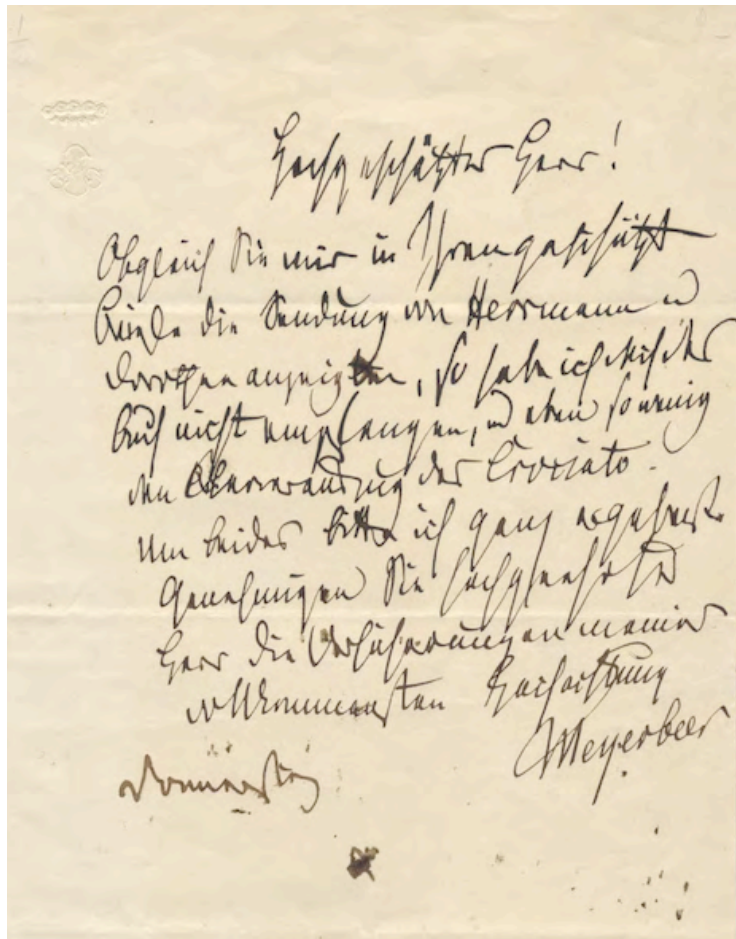 Hochgeschätzter Herr!
Obgleich Sie mir in Ihren geschätzt
Briefe die Sendung von Herrmann u
Dorothea anzeigten, so habe ich doch das
Buch nicht empfangen, u eben so wenig
den des Crociato.
Um beides bitte ich ganz ergebenst.
Genehmigen Sie hochgeehrter
Herr die Versicherungen meiner
vollkommensten Hochachtung
Meyerbeer
Donnerstag